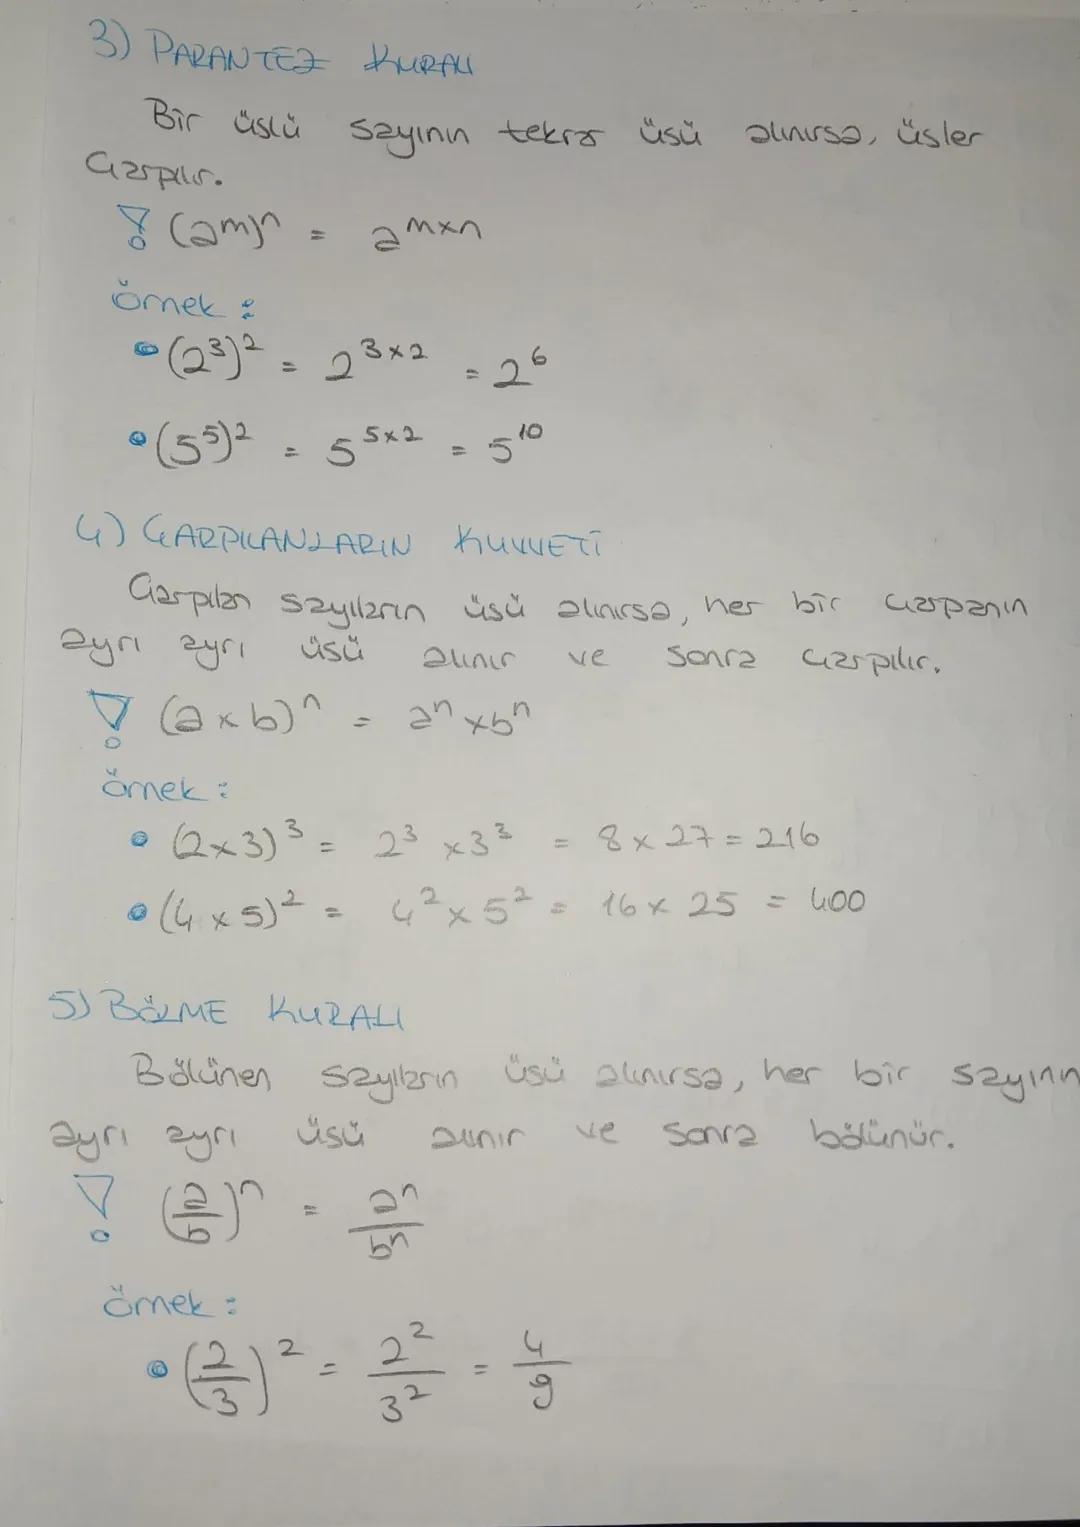 3) PARANTEZ KURALI
Bir üslü sayının tekrar üsü alınırsa, üsler
çarpılır.
! (a^m)^n = a^m×n
örnek :
• (2^3)^2 = 2^3×2 = 2^6
• (5^5)^2 = 5^5×2 = 5^10
4) ÇARPILANLARIN KUVVETİ
Çarpılan sayıların üsü alınırsa, her bir çarpanın
ayrı ayrı üsü alınır ve sonra çarpılır.
! (a×b)^n = a^n×b^n
örnek :
• (2×3)^3 = 2^3 ×3^3 = 8×27 = 216
• (4×5)^2 = 4^2×5^2 = 16×25 = 400
5) BÖLME KURALI
Bölünen sayıların üsü alınırsa, her bir sayının
ayrı ayrı üsü alınır ve sonra bölünür.
! (a/b)^n = a^n/b^n
örnek :
• (2/3)^2 = 2^2/3^2 = 4/9